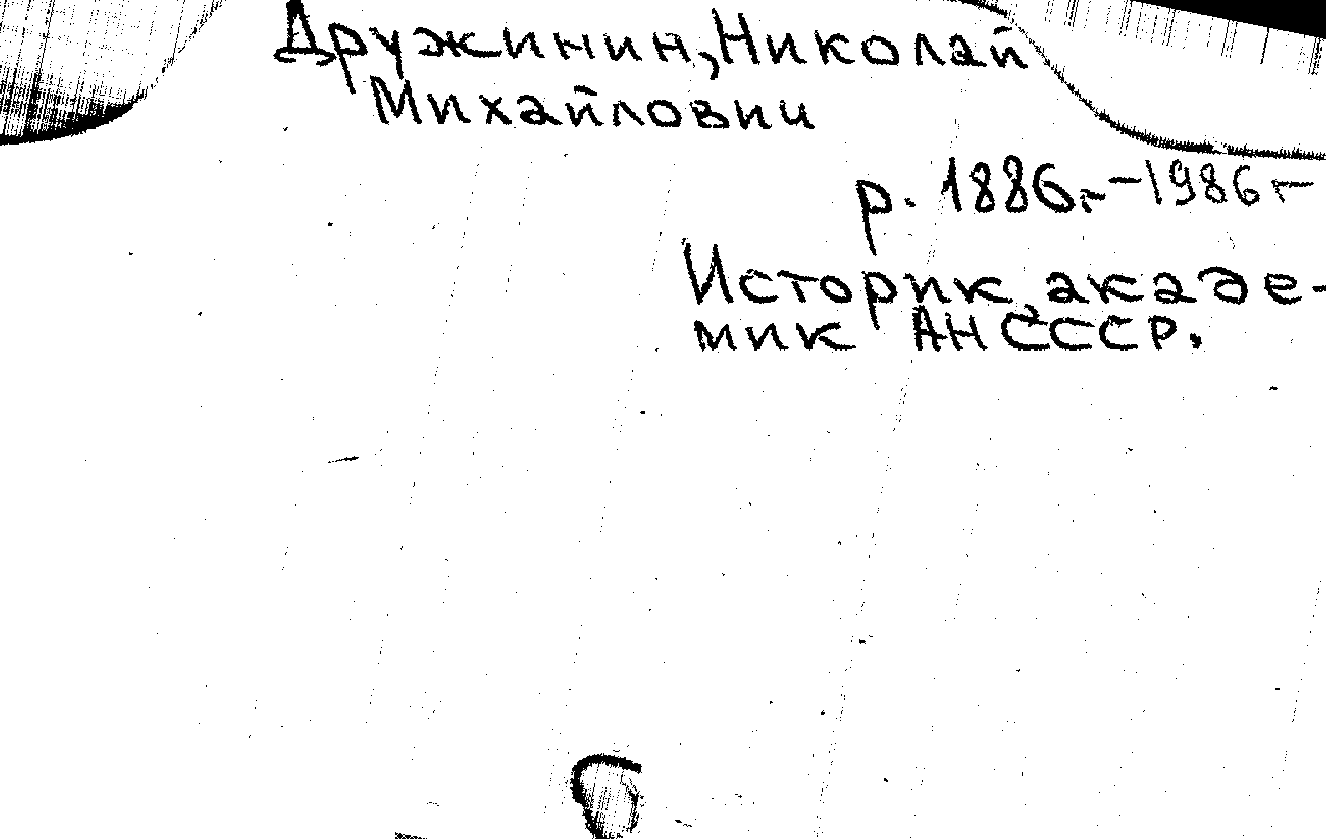 Дружинин, Николай
Михайлович
р. 1886г. - 1986г
Историк, акаде-
мик АН СССР.